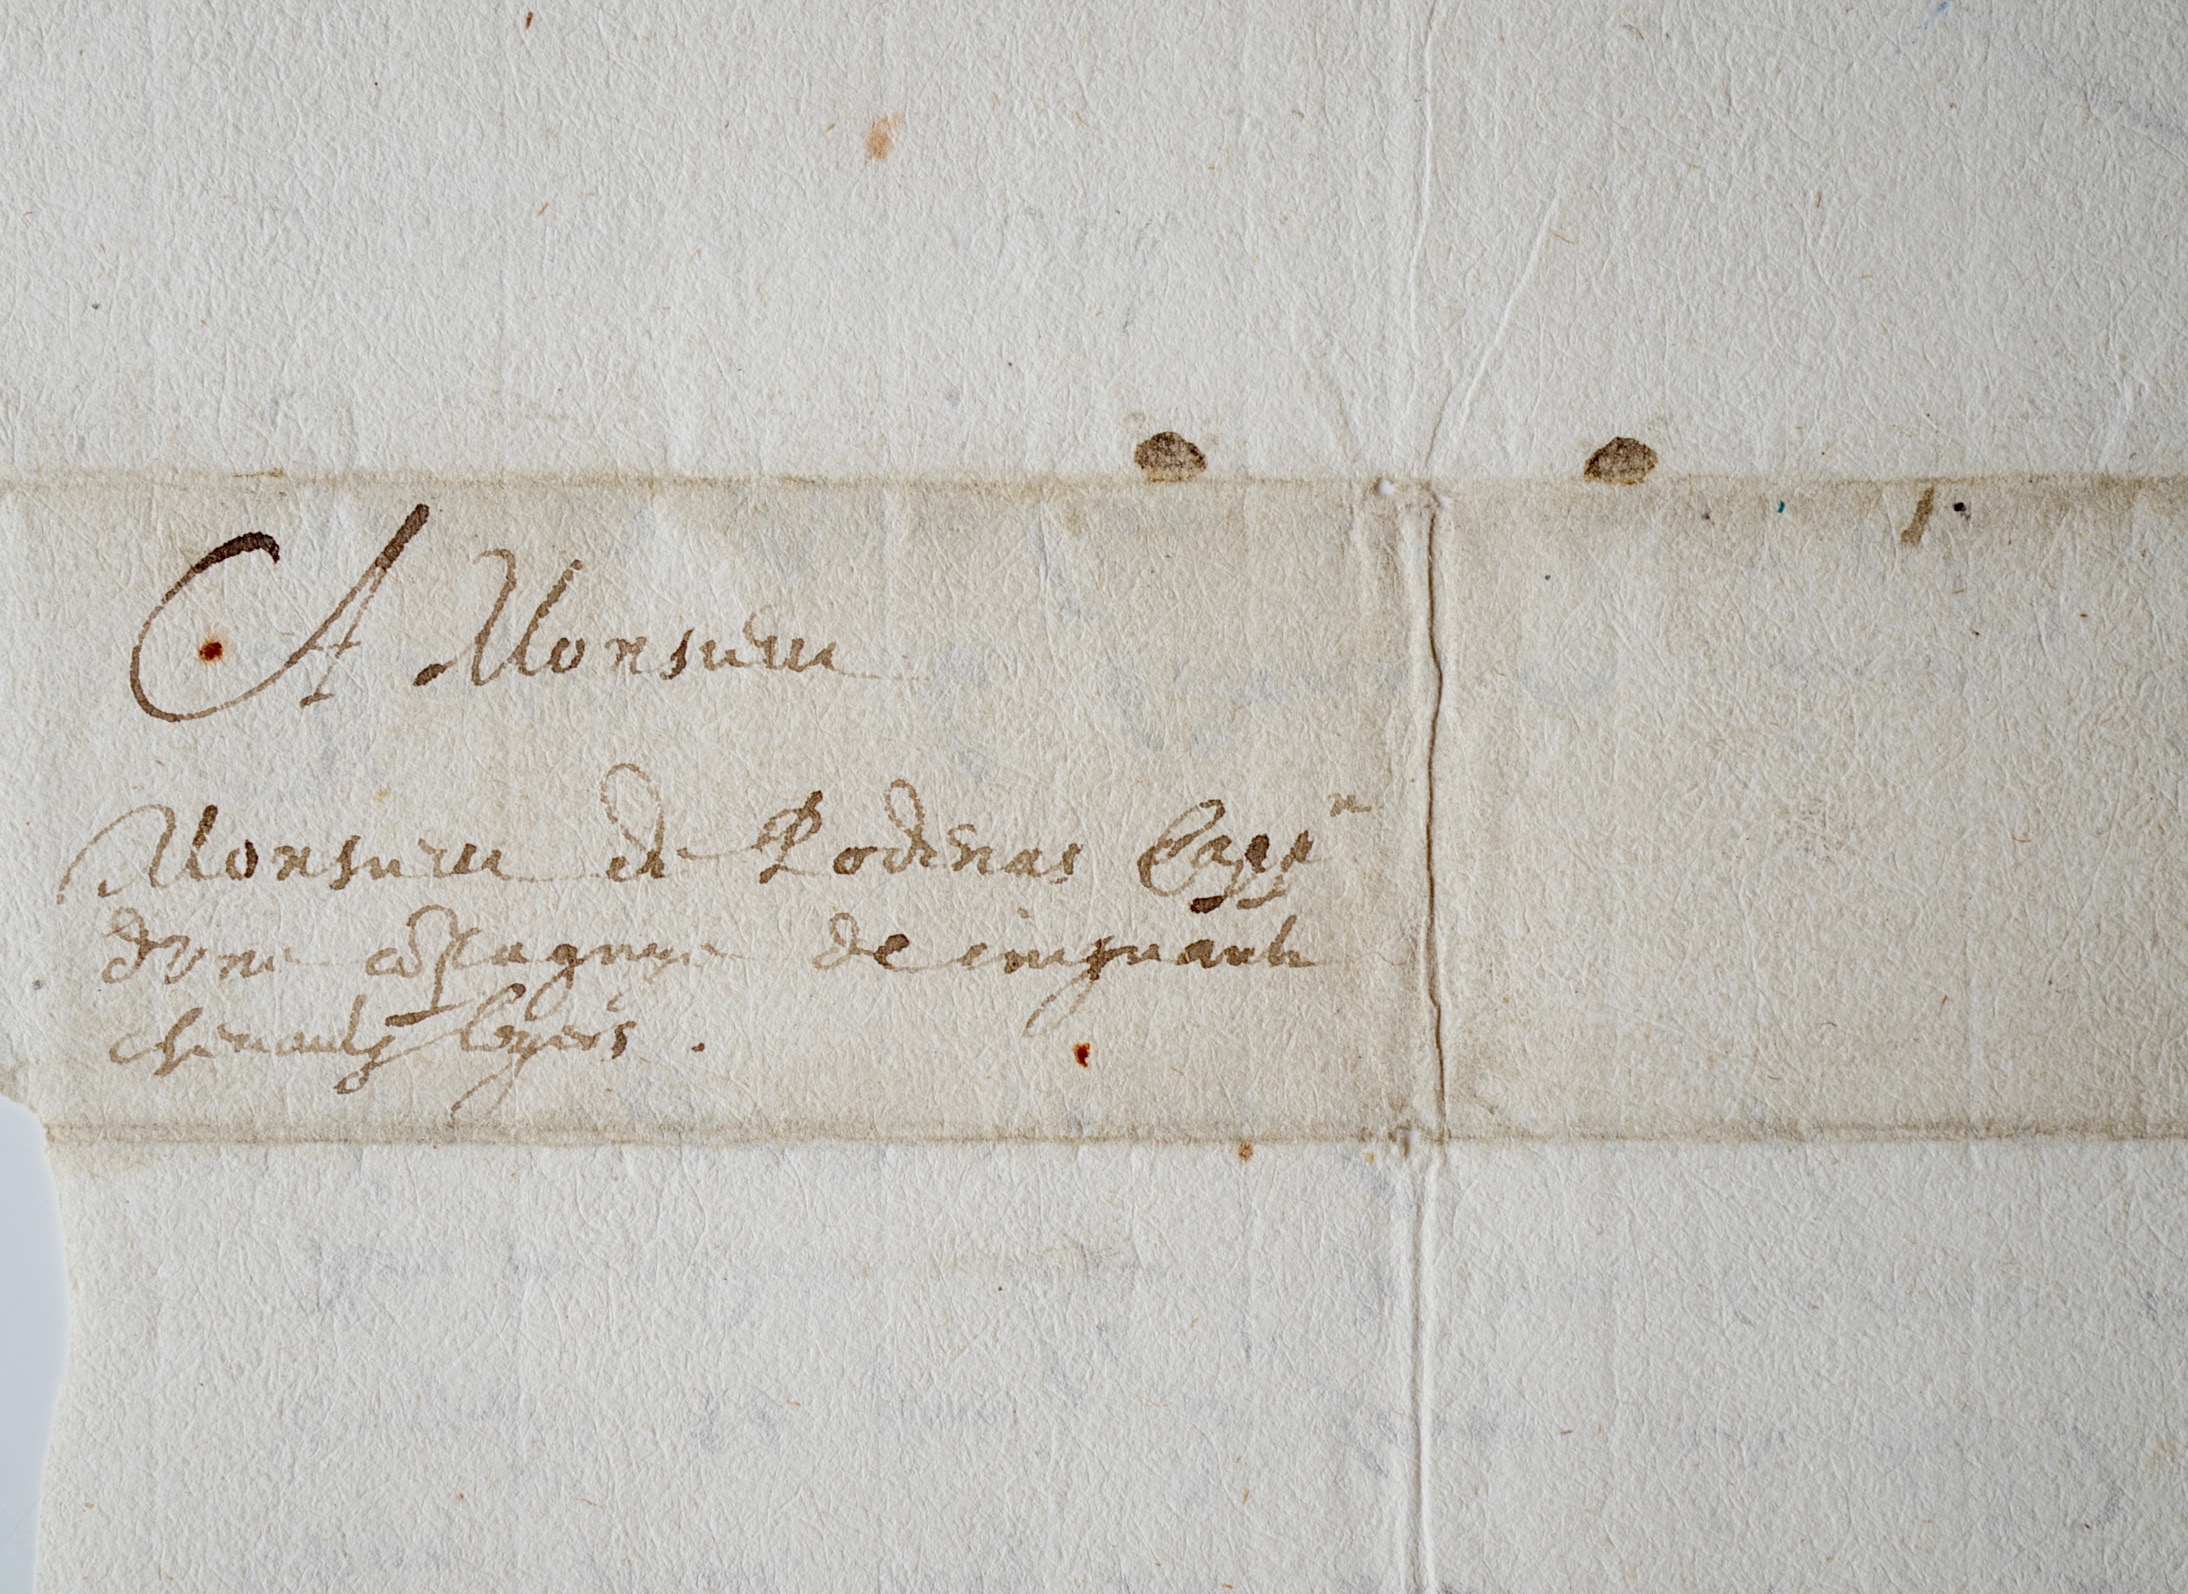 A Monsieur
Monsieur de Rodenas Cappne
d'vne cõpagnye de cinquante
chevaulx legers .